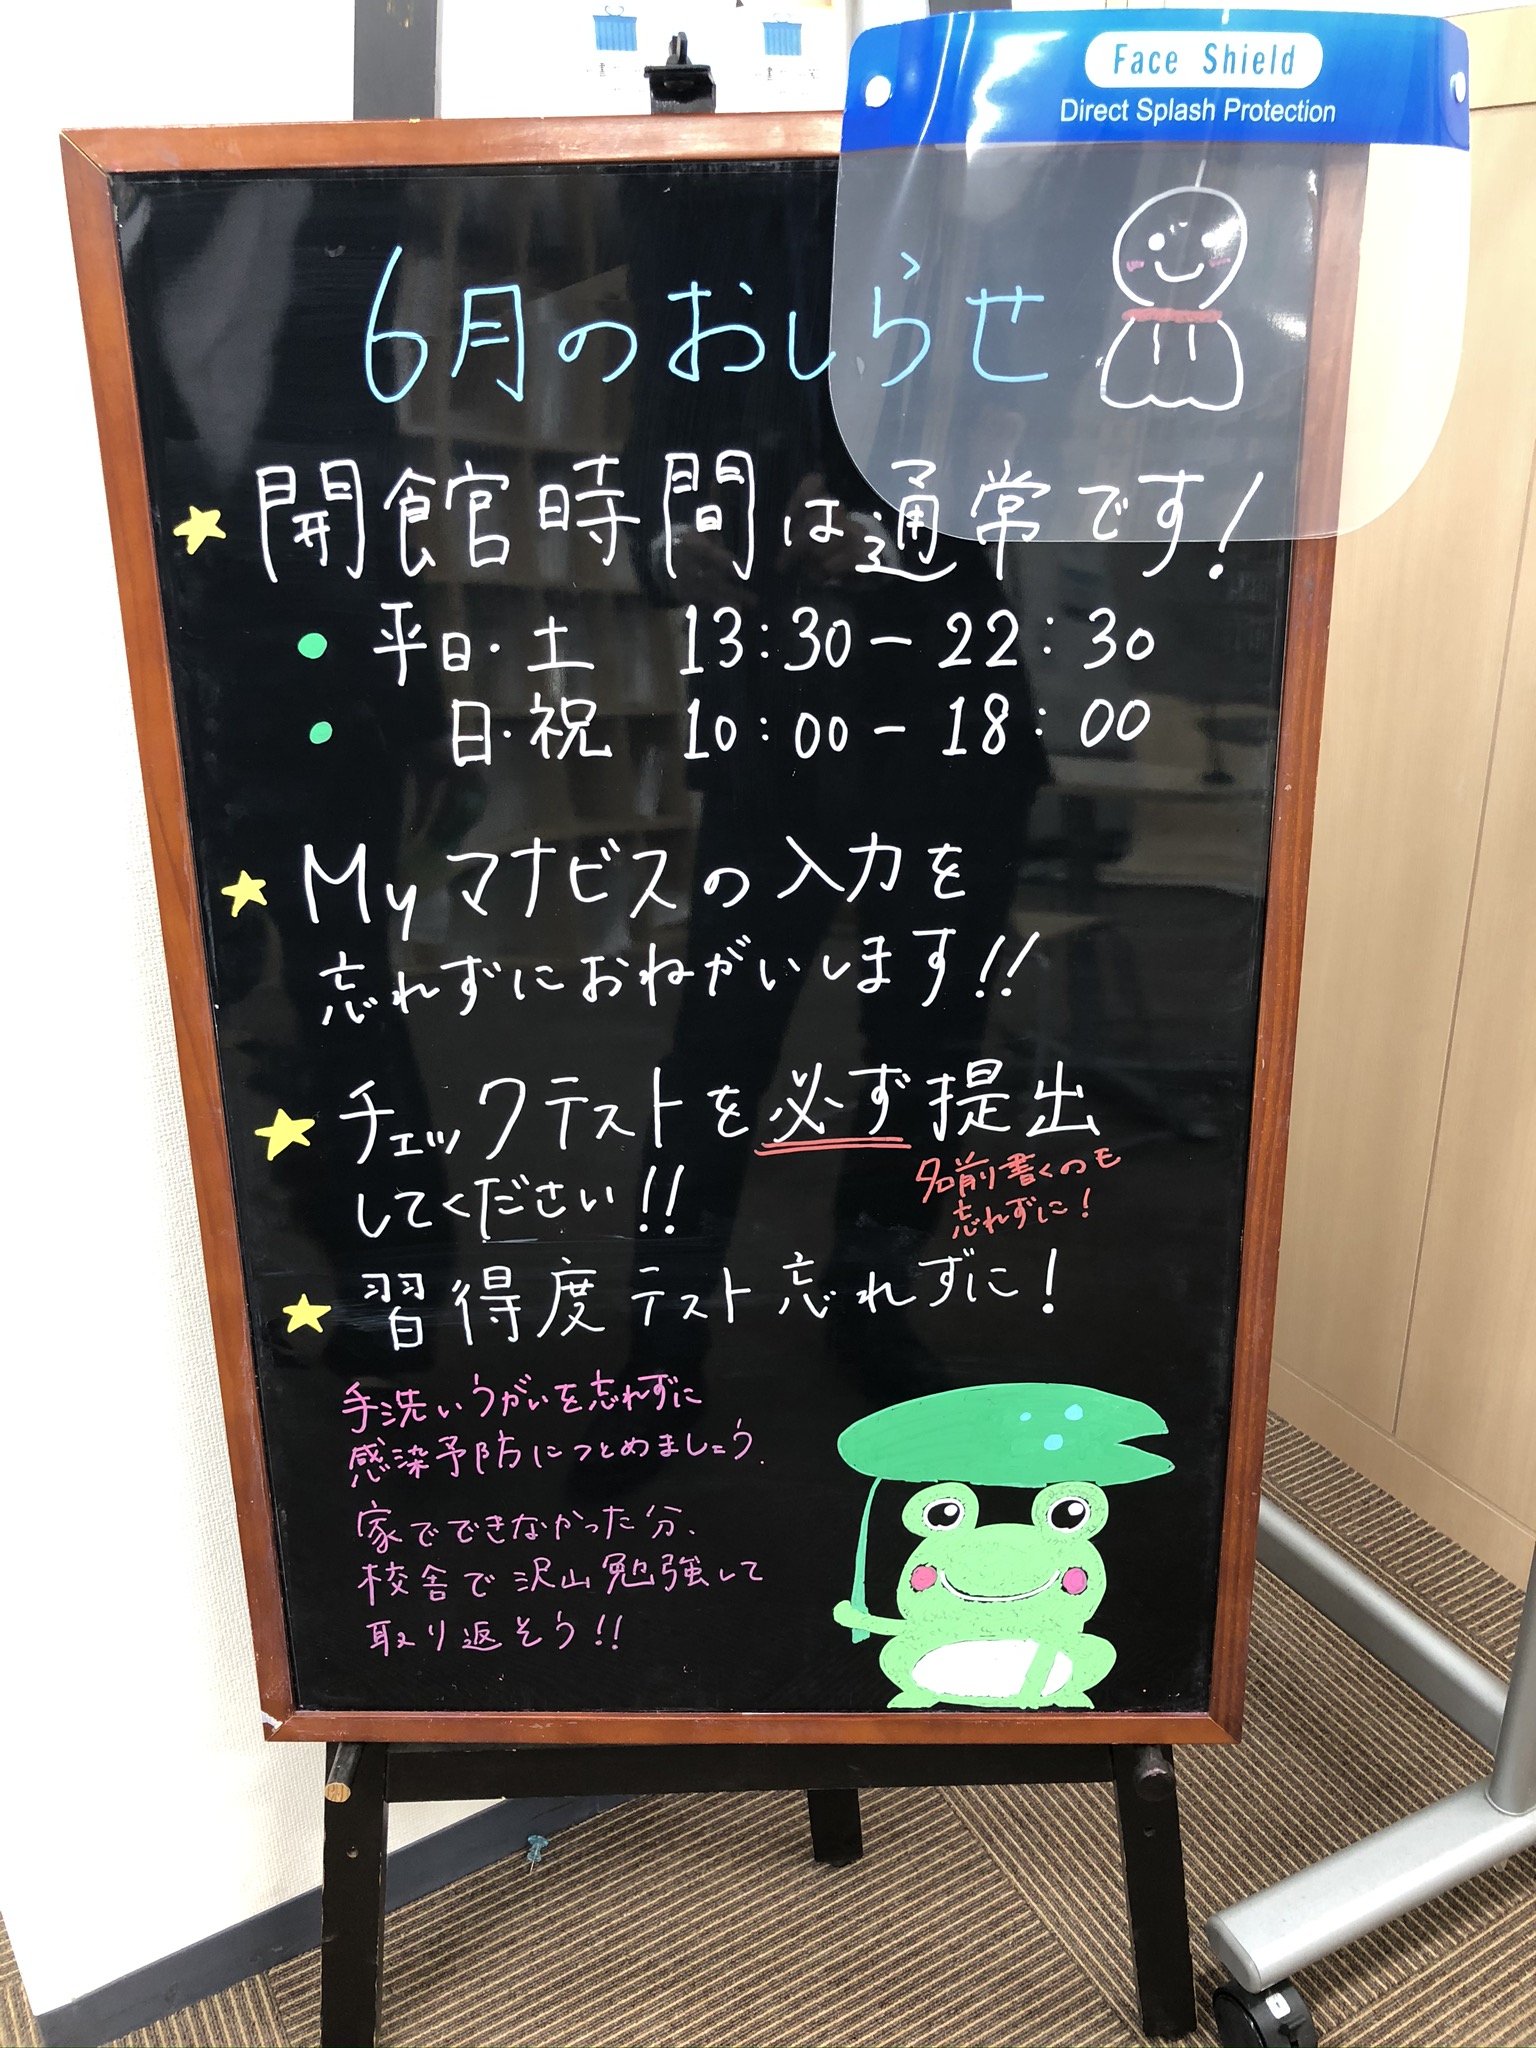 Face Shield
Direct Splash Protection
6月のおしらせ
開館時間は通常です!
平日・土 13:30－22:30
日・祝 10:00－18:00
Myマナビスの入力を
忘れずにおねがいします!!
チェックテストを必ず提出
してください!!
名前書くのも
忘れずに!
習得度テスト忘れずに!
手洗いうがいを忘れずに
感染予防につとめましょう.
家でできなかった分、
校舎で沢山勉強して
取り返そう!!